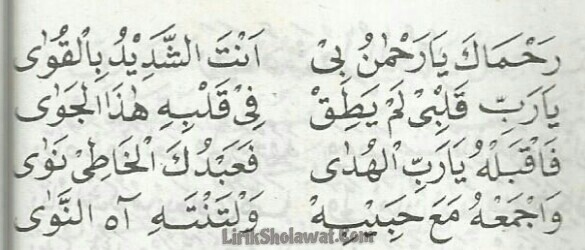 رَحْمَاكَ يَارَحْمٰنُ بِيْ اَنْتَ الشَّدِيْدُ بِالْقُوٰى
يَارَبِّ قَلْبِيْ لَمْ يَطِقْ فِيْ قَلْبِهِ هٰذَا الْجَوٰى
فَاقْبَلْهُ يَارَبِّ الْهُدٰى فَعَبْدُكَ الْخَاطِئْ نَوٰى
وَاجْمَعْهُ مَعَ حَبِيْبِهْ وَلْتَنْتَهِ آهُ النَّوٰى
LirikSholawat.Com